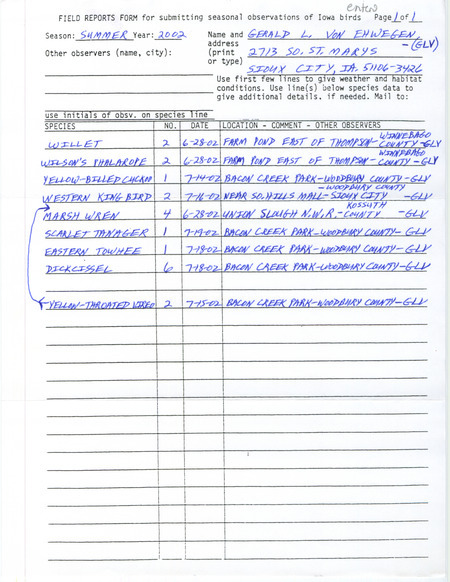 enter
FIELD REPORTS FORM for submitting seasonal observations of Iowa birds Page 1 of 1
Season: SUMMER Year: 2002 Name and GERALD L. VON EHWEGEN, -(GLV)
Other observers (name, city): address (print or type) 2713 SO. ST. MARYS
SIOUX CITY, IA. 51106-3426
Use first few lines to give weather and habitat
conditions. Use line(s) below species data to
give additional details. if needed. Mail to:
use initials of obsv. on species line
SPECIES NO. DATE LOCATION - COMMENT - OTHER OBSERVERS
WILLET 2 6-28-02 FARM POND EAST OF THOMPSON- WINNEBAGO COUNTY -GLV
WILSON'S PHALAROPE 2 6-28-02 FARM POND EAST OF THOMPSON- WINNEBAGO COUNTY -GLV
YELLOW-BILLED CUCKOO 1 7-14-02 BACON CREEK PARK-WOODBURY COUNTY-GLV
WESTERN KINGBIRD 2 7-16-02 NEAR SO. HILLS MALL-SIOUX CITY -WOODBURY COUNTY -GLV
MARSH WREN 4 6-28-02 UNION SLOUGH N.W.R.- KOSSUTH COUNTY -GLV
SCARLET TANAGER 1 7-19-02 BACON CREEK PARK-WOODBURY COUNTY-GLV
EASTERN TOWHEE 1 7-18-02 BACON CREEK PARK-WOODBURY COUNTY-GLV
DICKCISSEL 6 7-18-02 BACON CREEK PARK-WOODBURY COUNTY-GLV
YELLOW-THROATED VIREO 2 7-15-02 BACON CREEK PARK-WOODBURY COUNTY-GLV